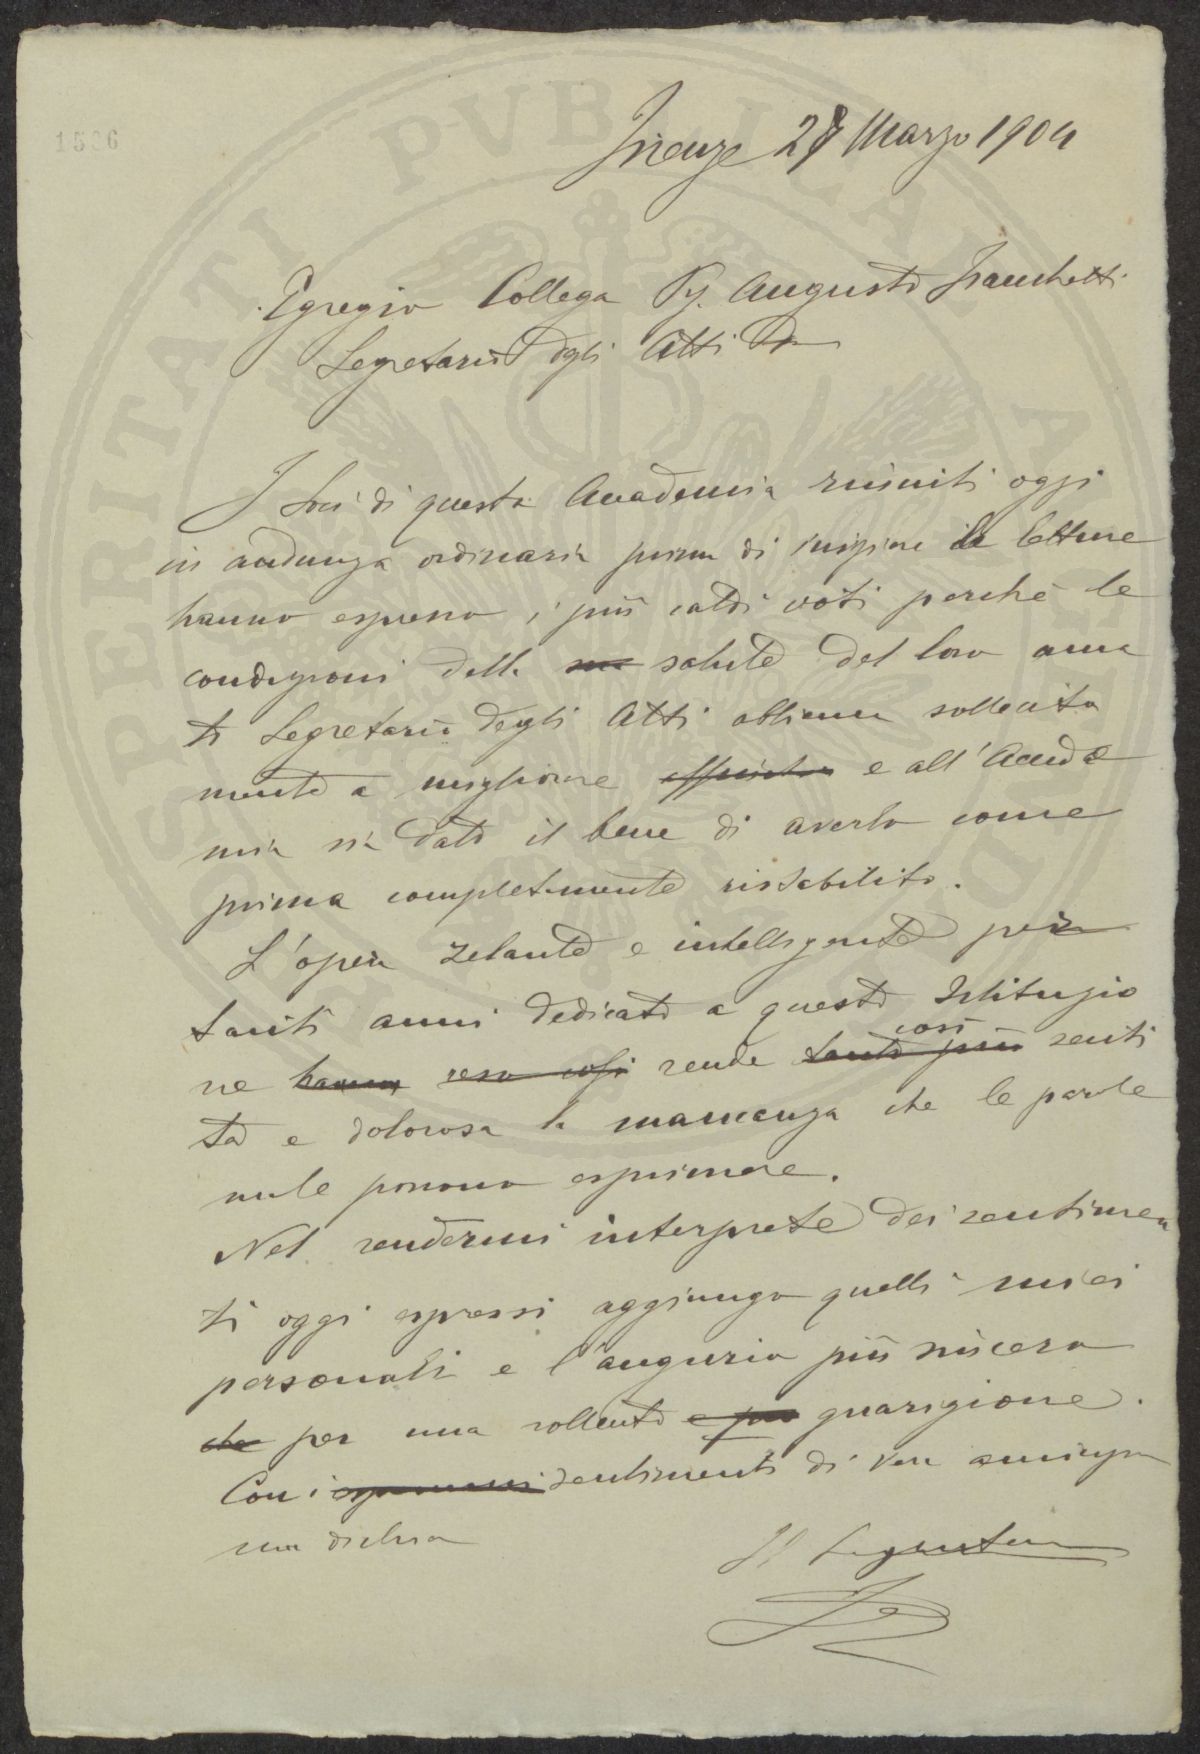 1506
Firenze 27 Marzo 1904
Egregio Collega Pr. Augusto Franchetti
Segretario degli Atti
I Soci di questa Accademia riuniti oggi
in adunanza ordinaria prima di iniziare le letture
hanno espresso i più caldi voti perchè le
condizioni della sua salute del loro ama
to Segretario degli Atti abbiano sollecita
mente a migliorare e all'Accade
mia sia dato il bene di averlo come
prima completamente ristabilito.
L'opera zelante e intelligente per
tanti anni dedicata a questa Istituzio
così
ne hanno reso così rende tanto più senti
ta e dolorosa la mancanza che le parole
male possono esprimere.
Nel rendermi interprete dei sentimen
ti oggi espressi aggiungo quelli miei
personali e l'augurio più sincero
che per una sollecita e guarigione.
Con i sentimenti di vera amicizia
mi dichiaro
Il Segretario
SPERITATI PVBLICAE